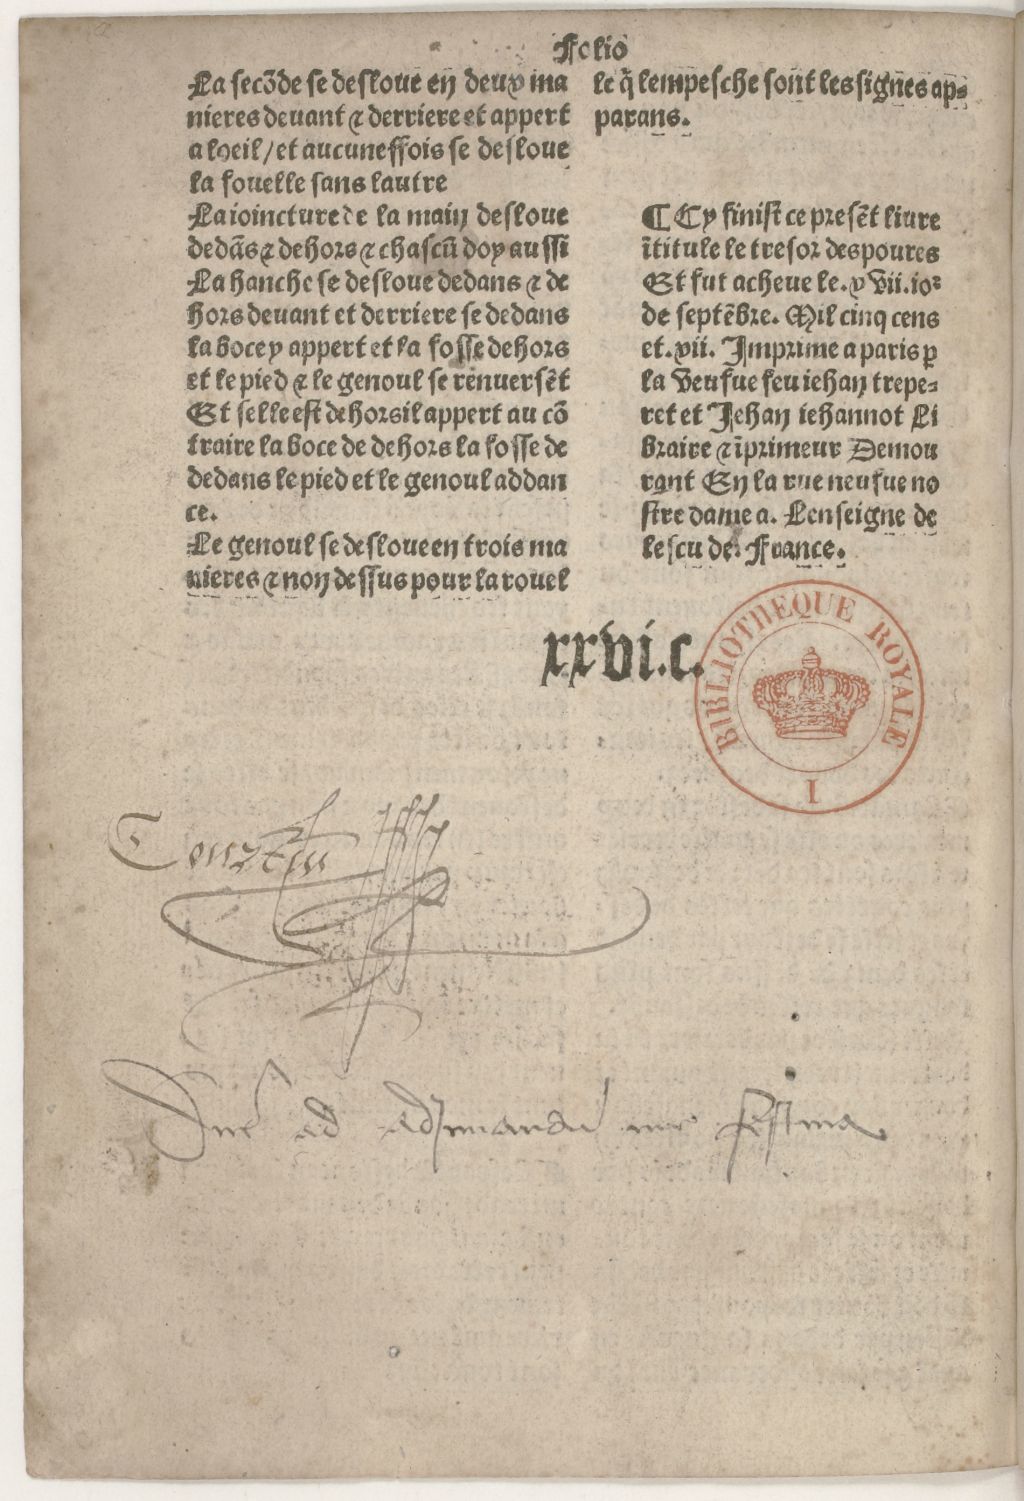 Folio
La secõde se desloue en deux ma
nieres deuant & derriere et appert
a loeil/et aucuneffois se desloue
la fouelle sans lautre
La ioincture de la main desloue
dedãs & dehors & chascũ doy aussi
La hanche se desloue dedans & de
hors deuant et derriere se dedans
la bocey appert et la fosse dehors
et le pied & le genoul se renuersẽt
Et selle est dehors il appert au cõ
traire la boce de dehors la fosse de
dedans le pied et le genoul addan
ce.
Le genoul se desloue en trois ma
nieres & non dessus pour la rouel
le q̃ lempesche sont les signes ap-
parans.
¶ Cy finist ce presẽt liure
ĩtitule le tresor des poures
Et fut acheue le .xvii. ior
de septẽbre. Mil cinq cens
et .vii. Imprime a paris p
la veufue feu iehan trepe-
ret et Jehan iehannot Li
braire & ĩprimeur Demou
rant En la rue neufue no
stre dame a. Lenseigne de
lescu de. France.
xxvi.c.
BIBLIOTHEQUE ROYALE
I
ad